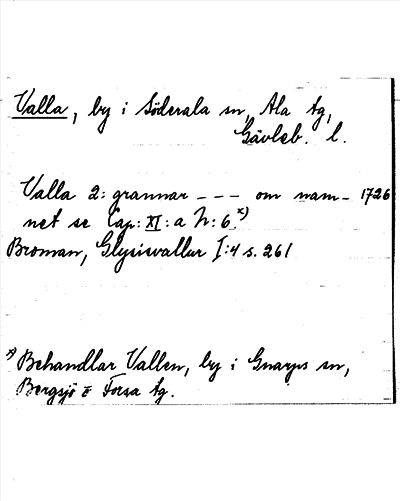 Valla, by i Söderala sn, Ala tg,
Gävleb. l.
Valla 2: grannar --- om nam- 1726
net se Cap: XI: a N: 6.x)
Broman, Glysisvallur I:4 s. 261
x) Behandlar Vallen, by i Gnarps sn,
Bergsjö o Forsa tg.